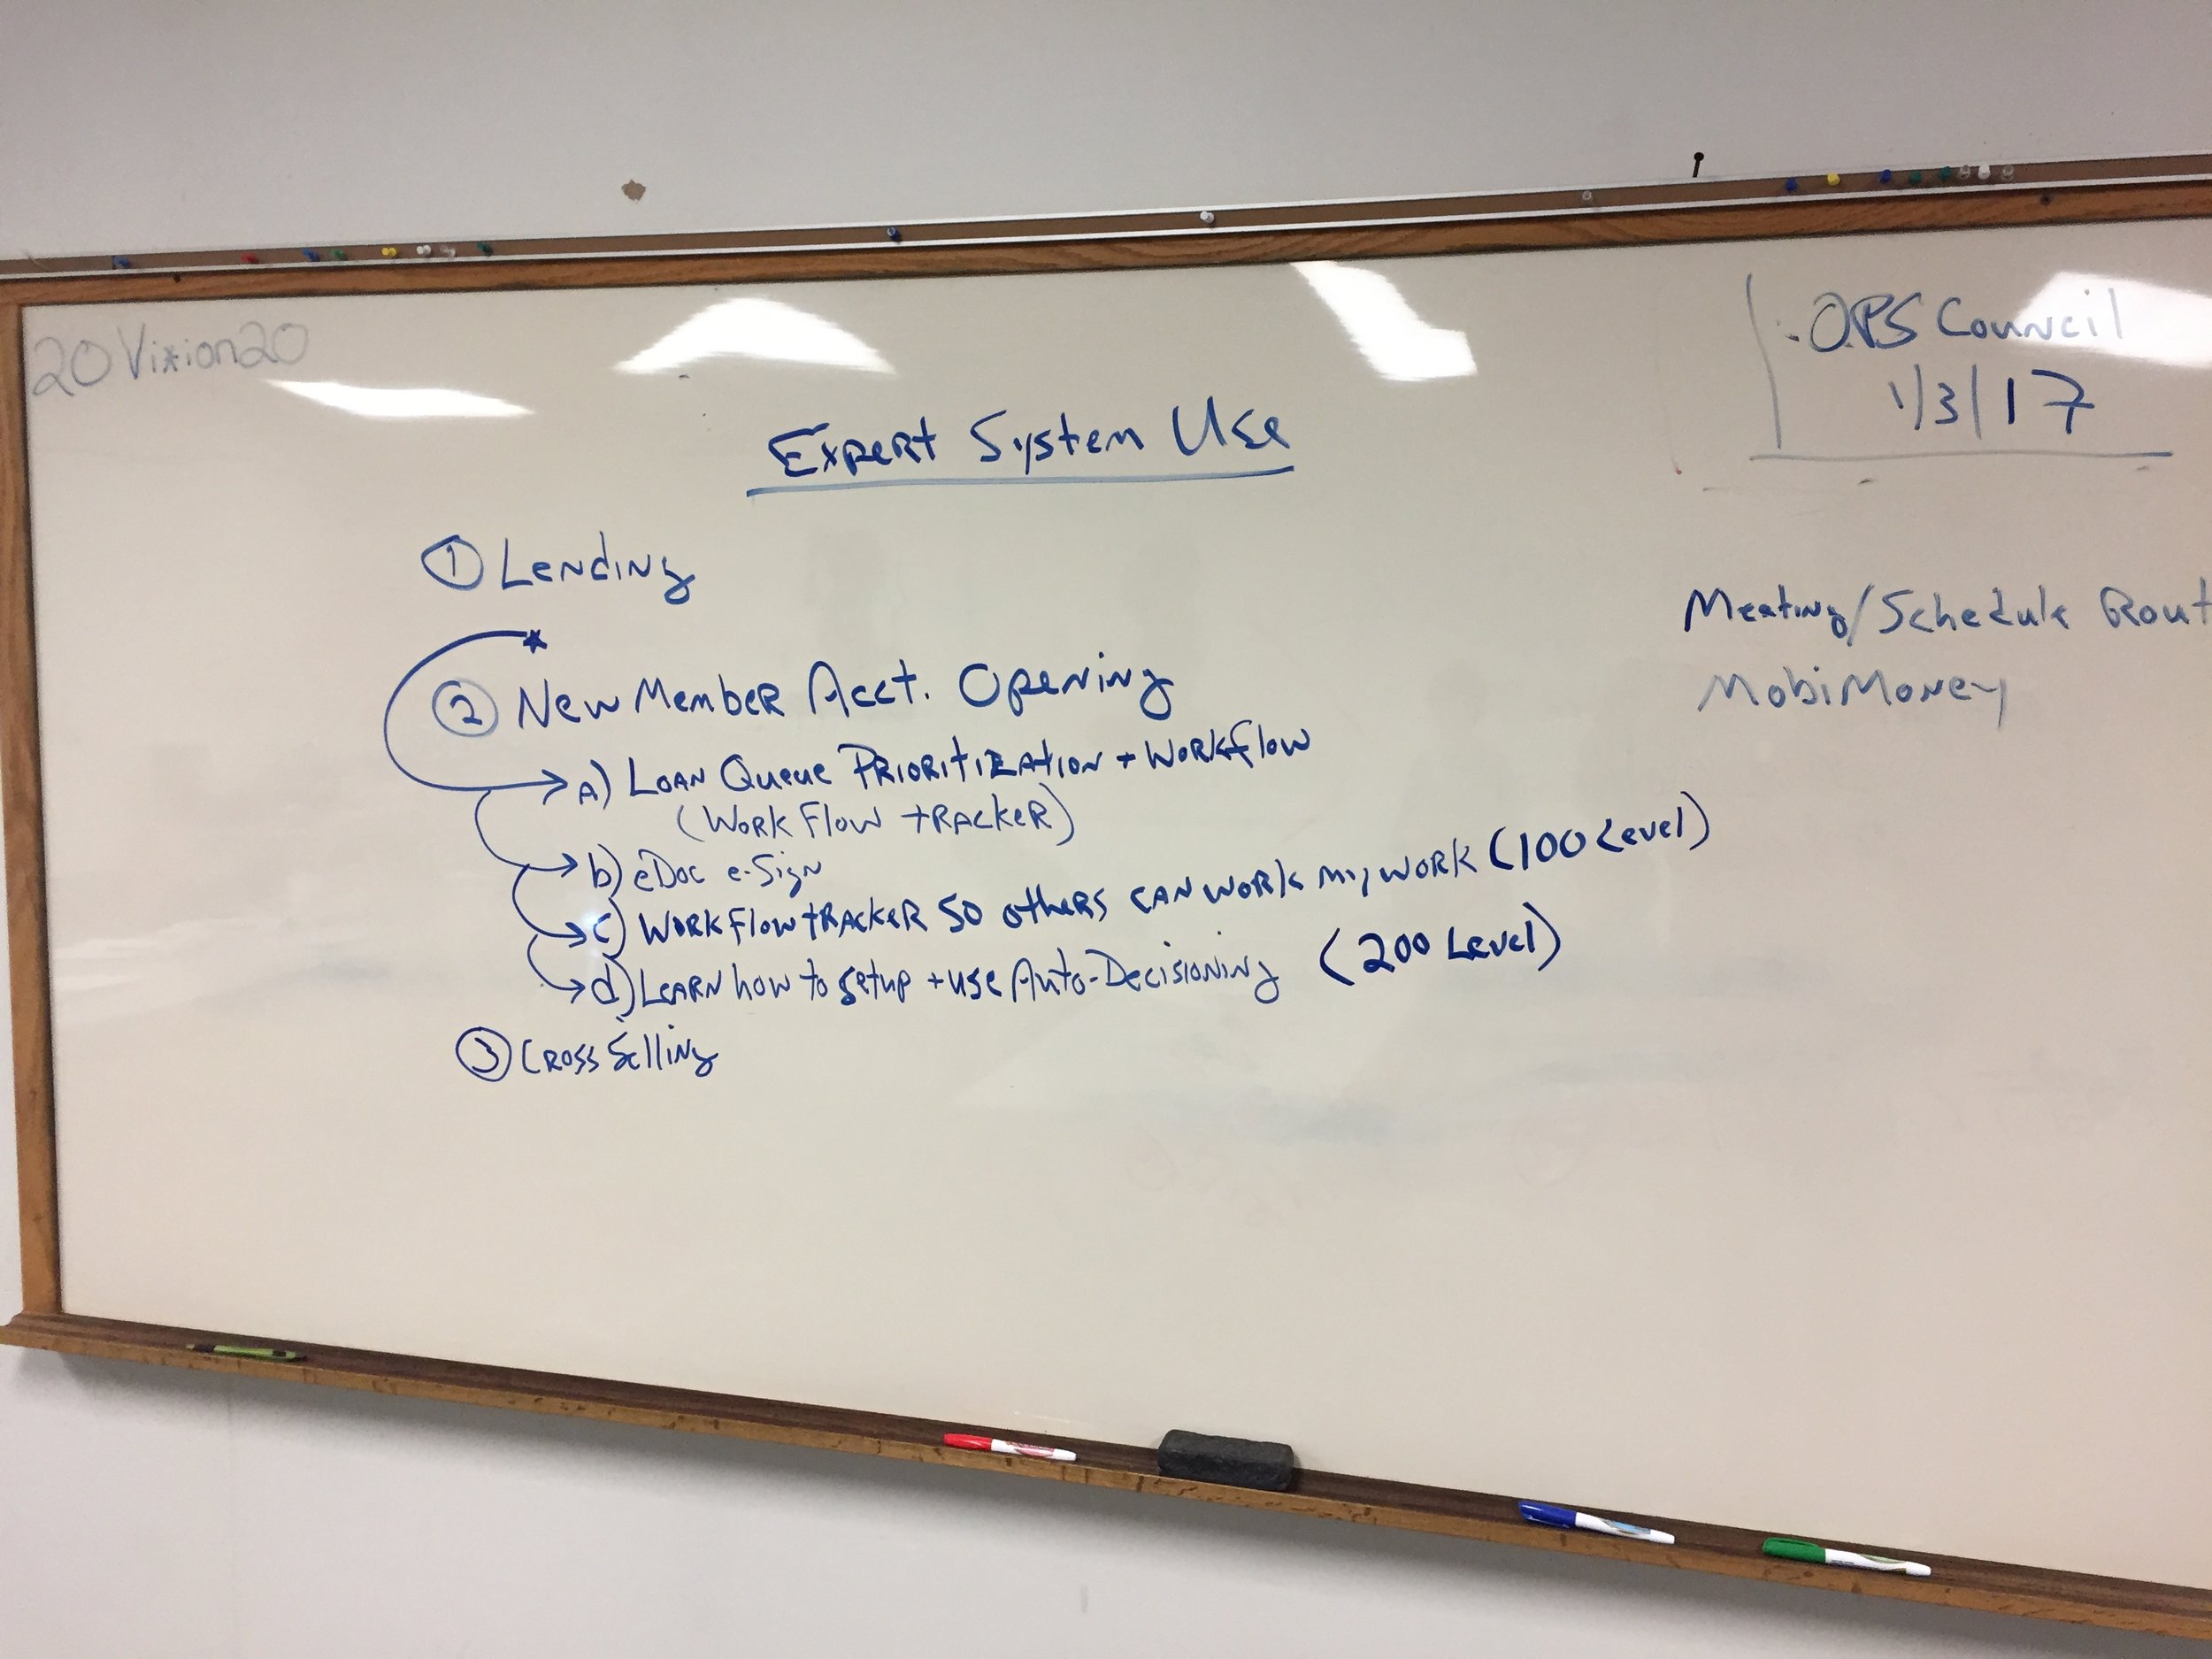 20 Vixion20
OPS Council
1/3/17
Expert System Use
① Lending
② New Member Acct. Opening
a) Loan Queue Prioritization + Workflow
(Work Flow tracker)
b) eDoc e-Sign
c) Work Flow tracker so others can work my work (100 Level)
d) Learn how to setup + use Auto-Decisioning (200 Level)
③ Cross Selling
Meeting/Schedule Rout
MobiMoney